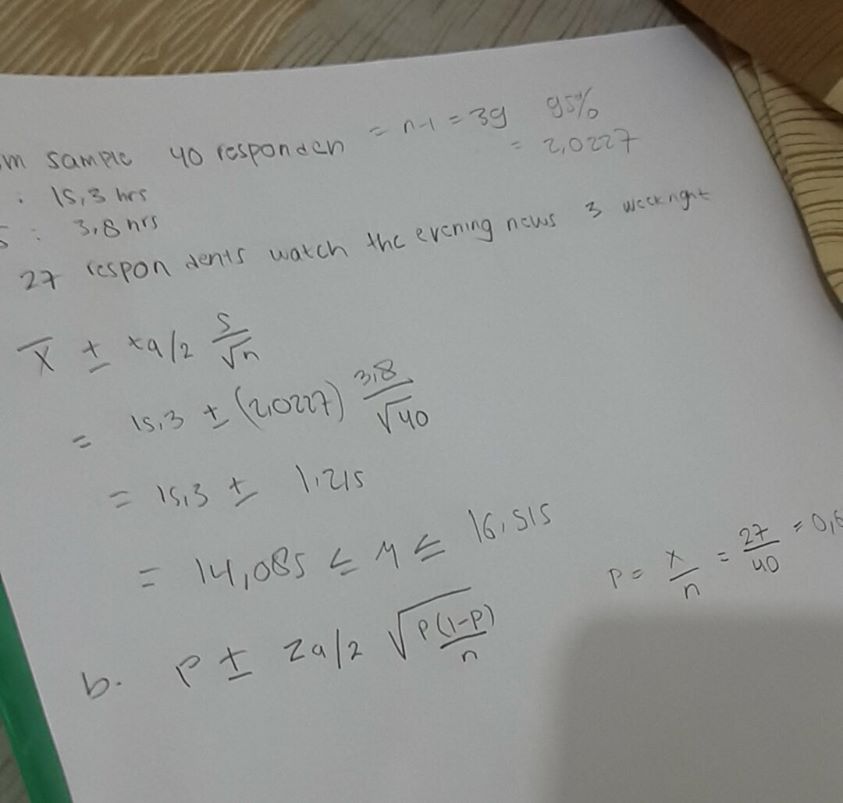 m sample 40 responden = n-1 = 39 95%
= 2,0227
: 15,3 hrs
S : 3,8 hrs
27 respondents watch the evening news 3 weeknight
x̄ ± ta/2 s/√n
= 15,3 ± (2,0227) 3,8/√40
= 15,3 ± 1.215
= 14,085 ≤ μ ≤ 16,515
p = x/n = 27/40 = 0,6
b. p ± Za/2 √p(1-p)/n